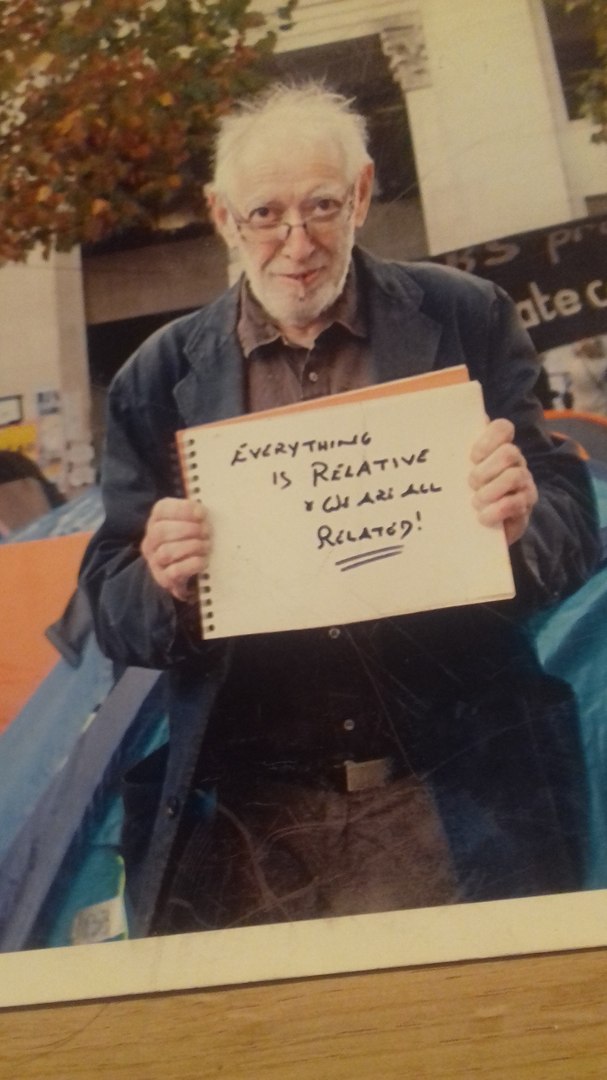 EVERYTHING
IS RELATIVE
& WE ARE ALL
RELATED!
ate c